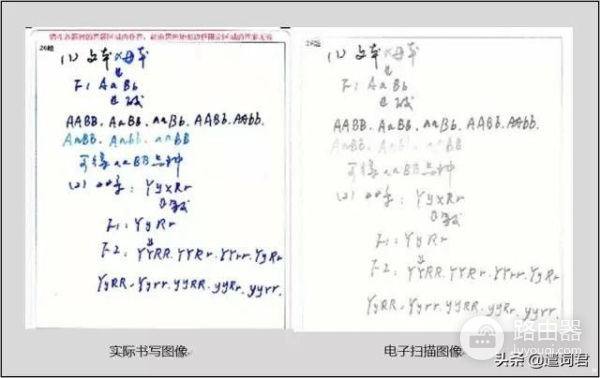 请在各题目的答题区域内作答，超出黑色矩形边框限定区域的答案无效
26题
(1) 父本 × 母本
↓
F1 AaBb
AABB. AaBB. aaBb. AABb. AAbb.
AaBB. Aabb. aaBB
可得aaBB品种
(2) 亲本: Yy×Rr
F1: YyRr
↓
F2: YYRR. YYRr. YYrr. YyRr
YyRR. Yyrr. yyRR. yyRr. yyrr.
26题
(1) 父本 × 母本
↓
F1 AaBb
AABB. AaBB. aaBb. AABb. AAbb.
AaBB. Aabb. aaBB
可得aaBB品种
(2) 亲本: Yy×Rr
F1: YyRr
↓
F2: YYRR. YYRr. YYrr. YyRr
YyRR. Yyrr. yyRR. yyRr. yyrr.
实际书写图像
电子扫描图像
路由器
luyouqi.com
头条 @遣词君